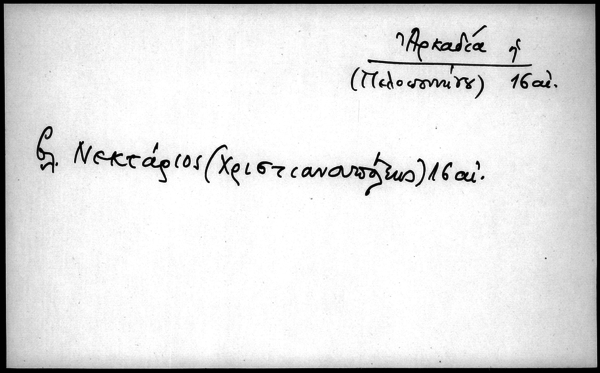 Ἀρκαδία ἡ
(Πελοποννήσου) 16 αἰ.
βλ. Νεκτάριος (Χριστιανουπόλεως) 16 αἰ.